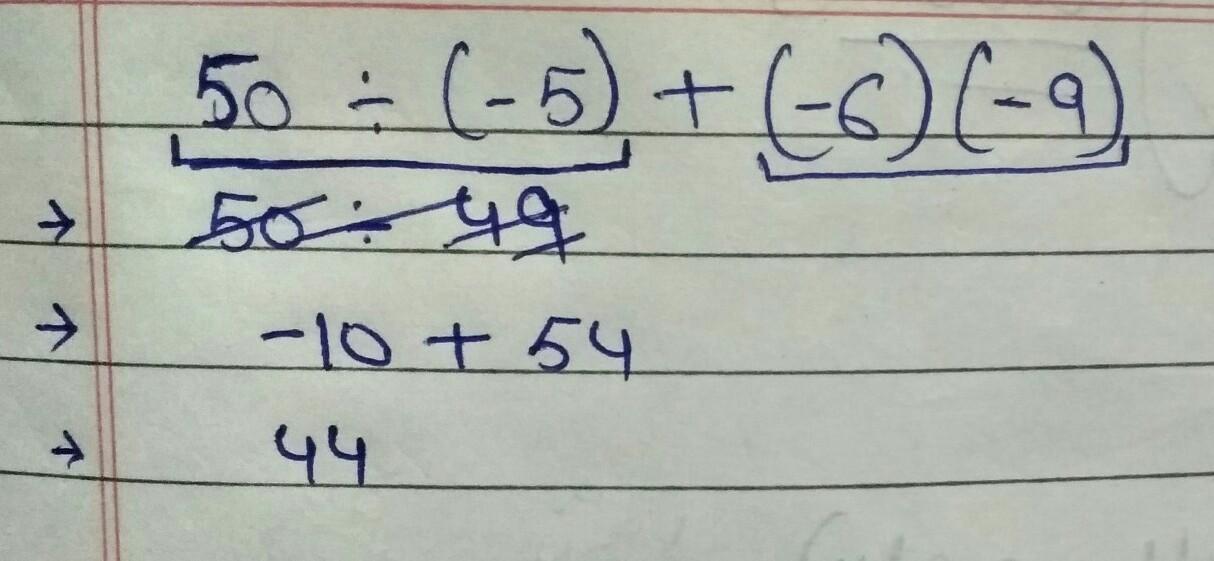 50 ÷ (-5) + (-6)(-9)
→ 50 ÷ 49
→ -10 + 54
→ 44